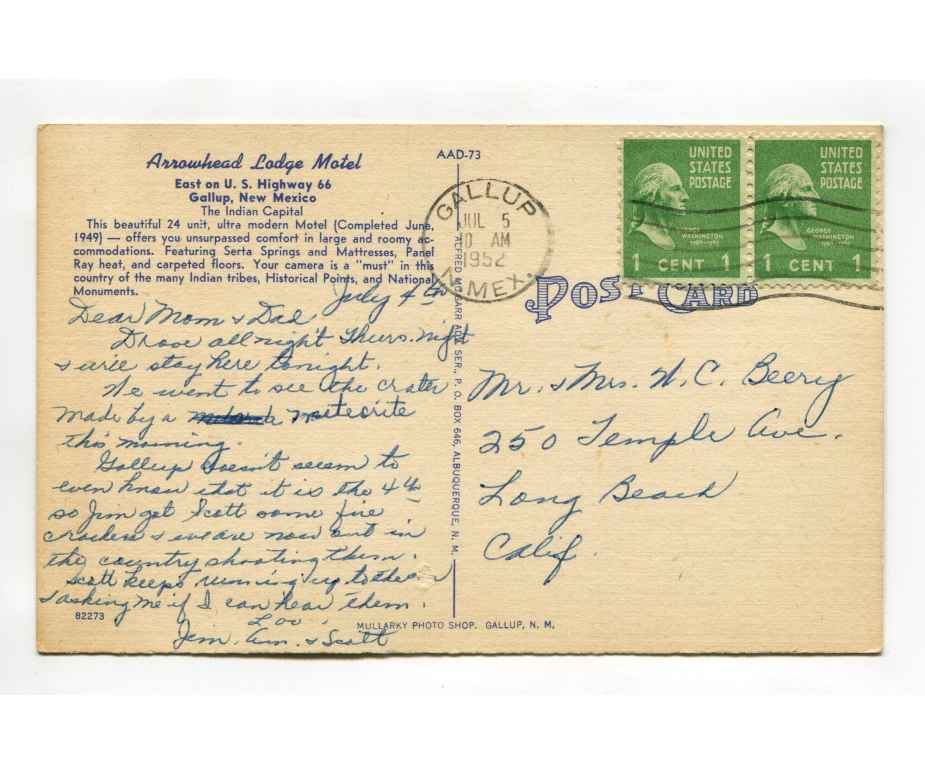 Arrowhead Lodge Motel
East on U. S. Highway 66
Gallup, New Mexico
The Indian Capital
This beautiful 24 unit, ultra modern Motel (Completed June,
1949) — offers you unsurpassed comfort in large and roomy ac-
commodations. Featuring Serta Springs and Mattresses, Panel
Ray heat, and carpeted floors. Your camera is a "must" in this
country of the many Indian tribes, Historical Points, and National
Monuments.
July 4th
Dear Mom & Dad
Drove all night Thurs. night
& are stay here tonight.
We went to see the crater
made by a meteorite
this morning.
Gallup doesn't seem to
even know that it is the 4th
so Jim got Scott some fire
crackers & we are now out in
the country shooting them.
Scott keeps running up to the car
& asking me if I can hear them.
Jim. Ann. & Scott
82273
AAD-73
ALFRED MC GARR ADV. SER., P. O. BOX 646, ALBUQUERQUE, N. M.
MULLARKY PHOTO SHOP. GALLUP, N. M.
GALLUP
JUL 5
10 AM
1952
N. MEX.
POST CARD
UNITED
STATES
POSTAGE
GEORGE
WASHINGTON
1 CENT 1
UNITED
STATES
POSTAGE
GEORGE
WASHINGTON
1 CENT 1
Mr. & Mrs. W. C. Beery
250 Temple Ave.
Long Beach
Calif.